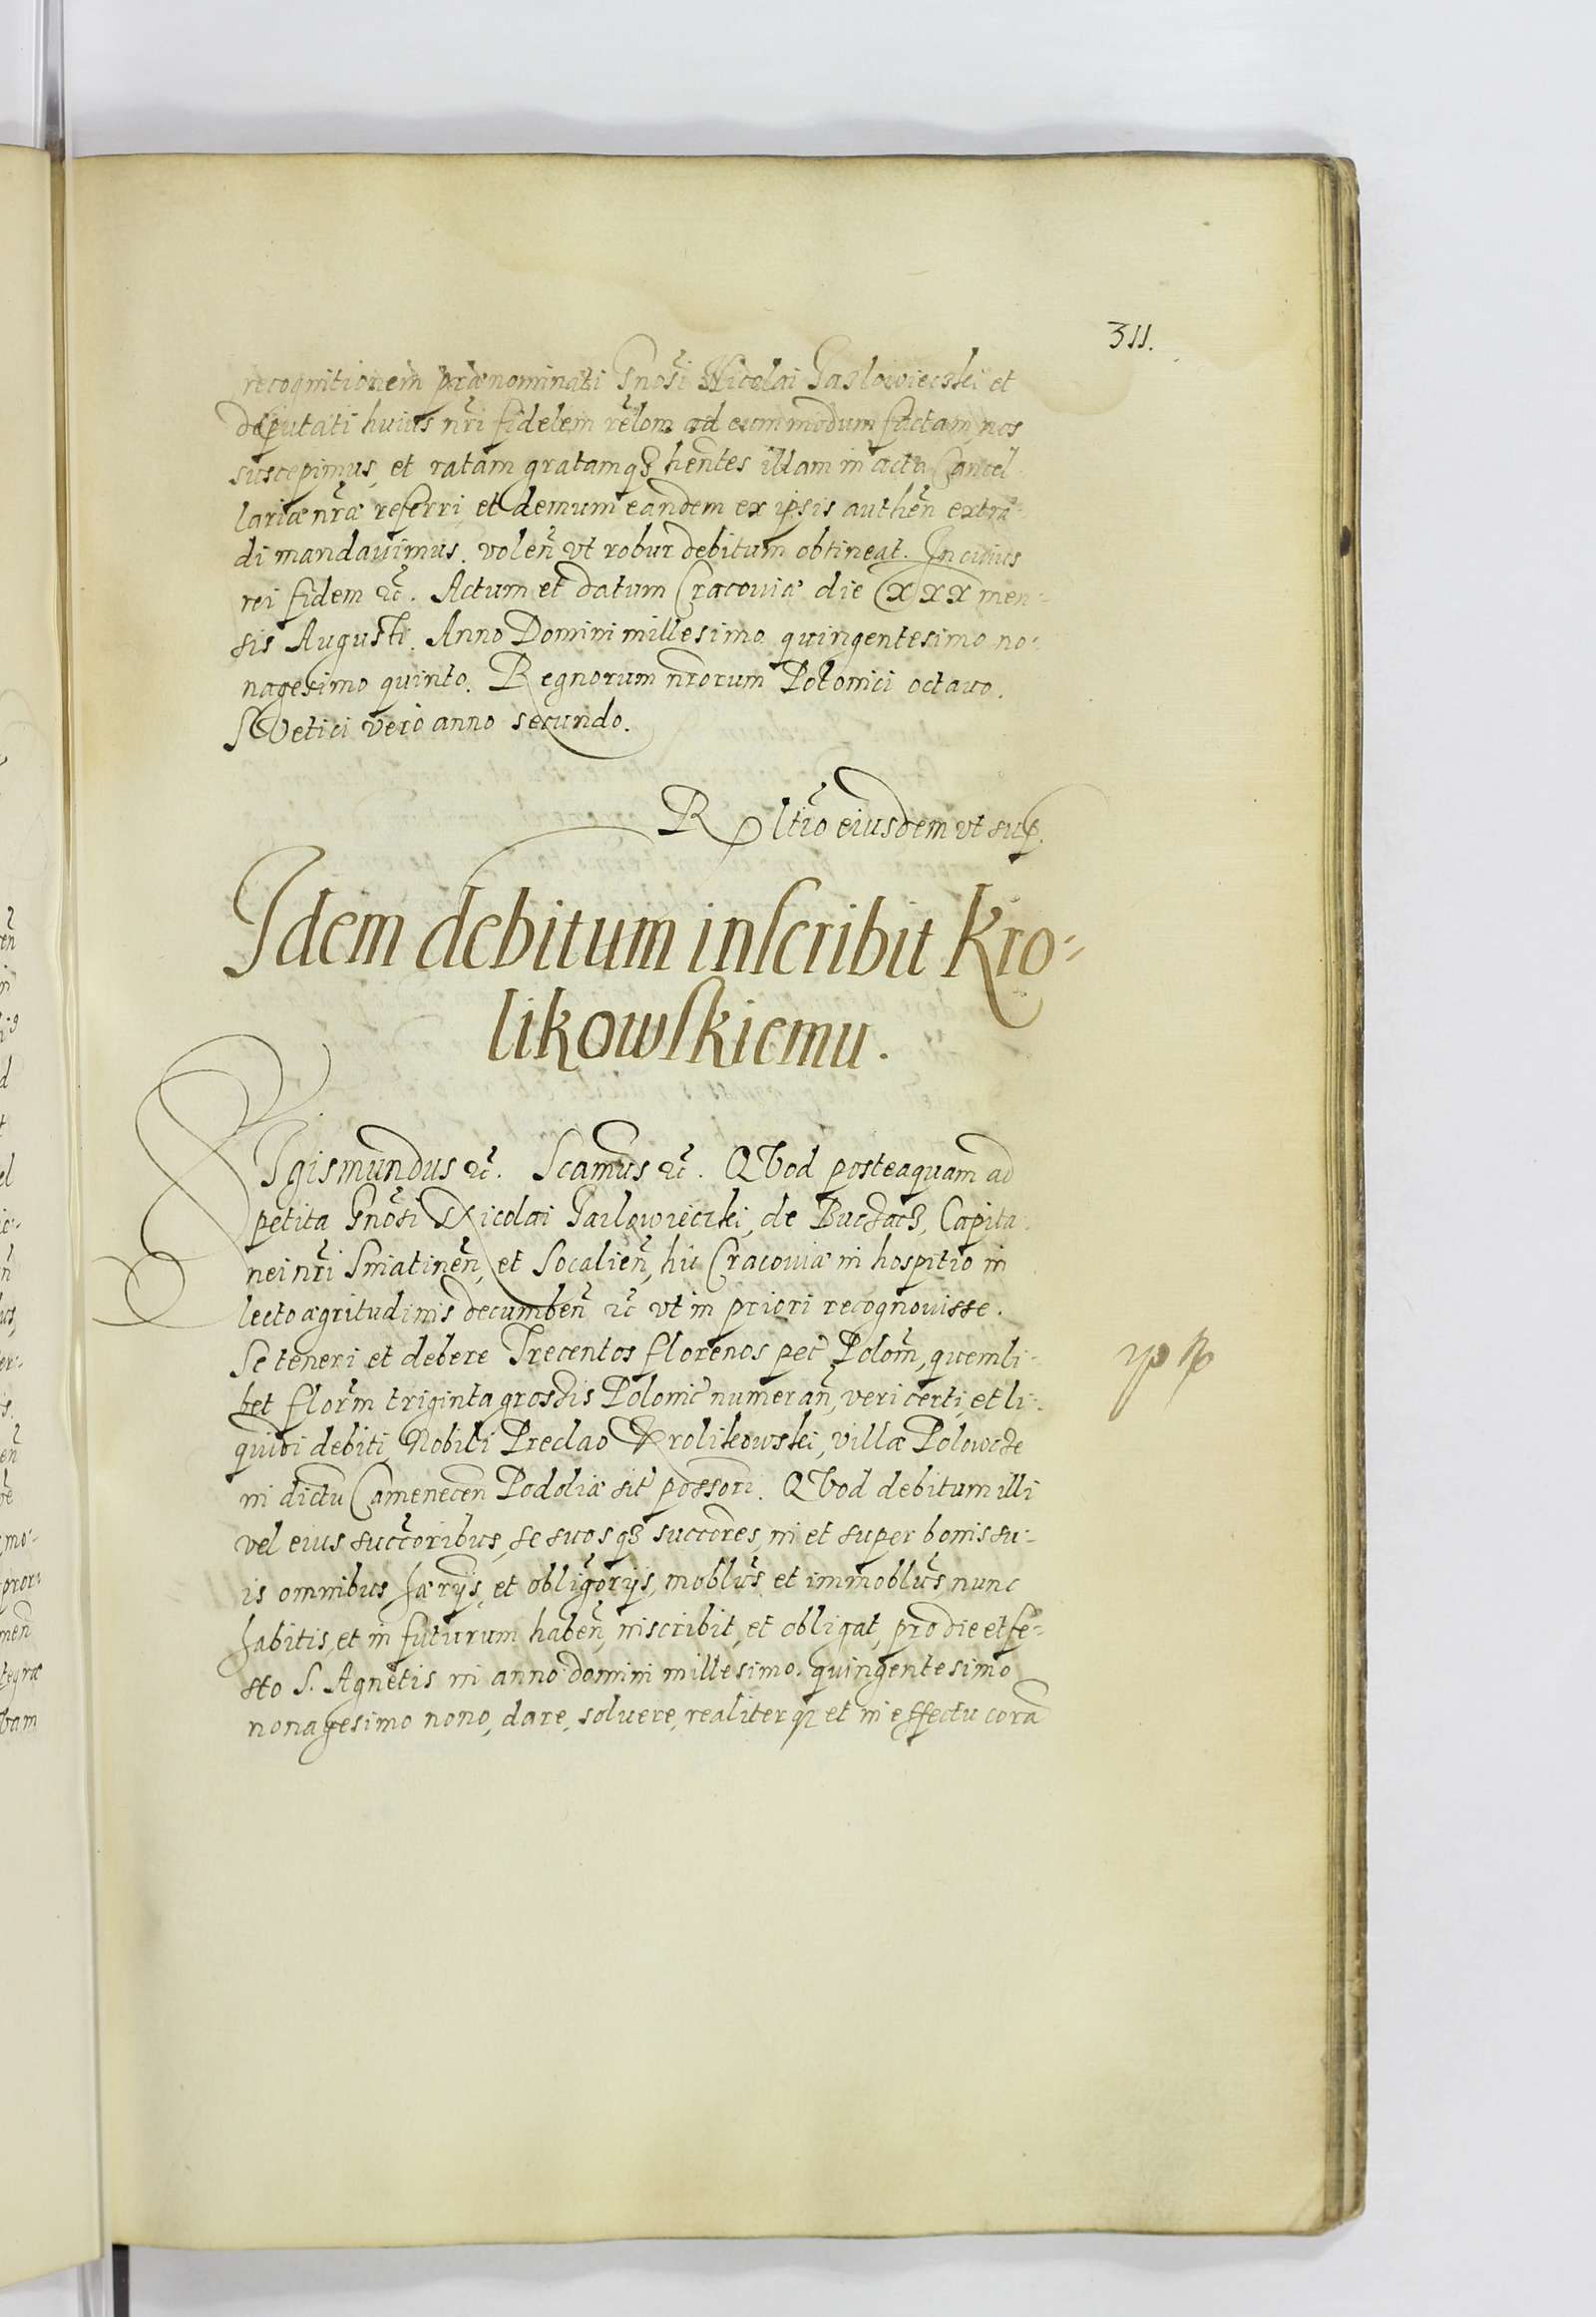 311.
recognitionem prænominati Gnosi Nicolai Jaslowiecski et
deputati huius nri fidelem relom ad eummodum factam nos
suscepimus, et ratam gratamq3 hentes illam in acta Cancel-
lariæ nræ referri, et demum eandem ex ipsis authen extra-
di mandauimus. volen vt robur debitum obtineat. In cuius
rei fidem &c. Actum et datum Cracouiæ die XXX men-
sis Augusti. Anno Domini millesimo quingentesimo no-
nagesimo quinto. Regnorum nrorum Polonici octauo.
SVetici vero anno secundo.
R ltio eiusdem vt sup.
Idem debitum inscribit Kro-
likowskiemu.
SIgismundus &c. Scamus &c. QVod posteaquam ad
petita Gnosi Nicolai Jaslowiecski, de Buczacz, Capita-
nei nri Sniatinen, et Socalien, hic Cracouiæ in hospitio in
lecto ægritudinis decumben &c vt in priori recognouisse.
Se teneri et debere Trecentos florenos pec Polom, quemli-
bet florm triginta grossis Polonic numeran, veri certi, et li-
quidi debiti, Nobili Preclao Krolikowski, villæ Polowcze
in dictu Camenecen Podoliæ sit possori. QVod debitum illi
vel eius succoribus, se suosq3 succores, in et super bonis su-
is omnibus hæryis, et obligoryis, moblus et immoblus nunc
habitis, et in futurum haben, inscribit, et obligat, pro die et fe-
sto S. Agnetis in anno domini millesimo. quingentesimo
nonagesimo nono, dare, soluere, realiterq3 et in effectu cora